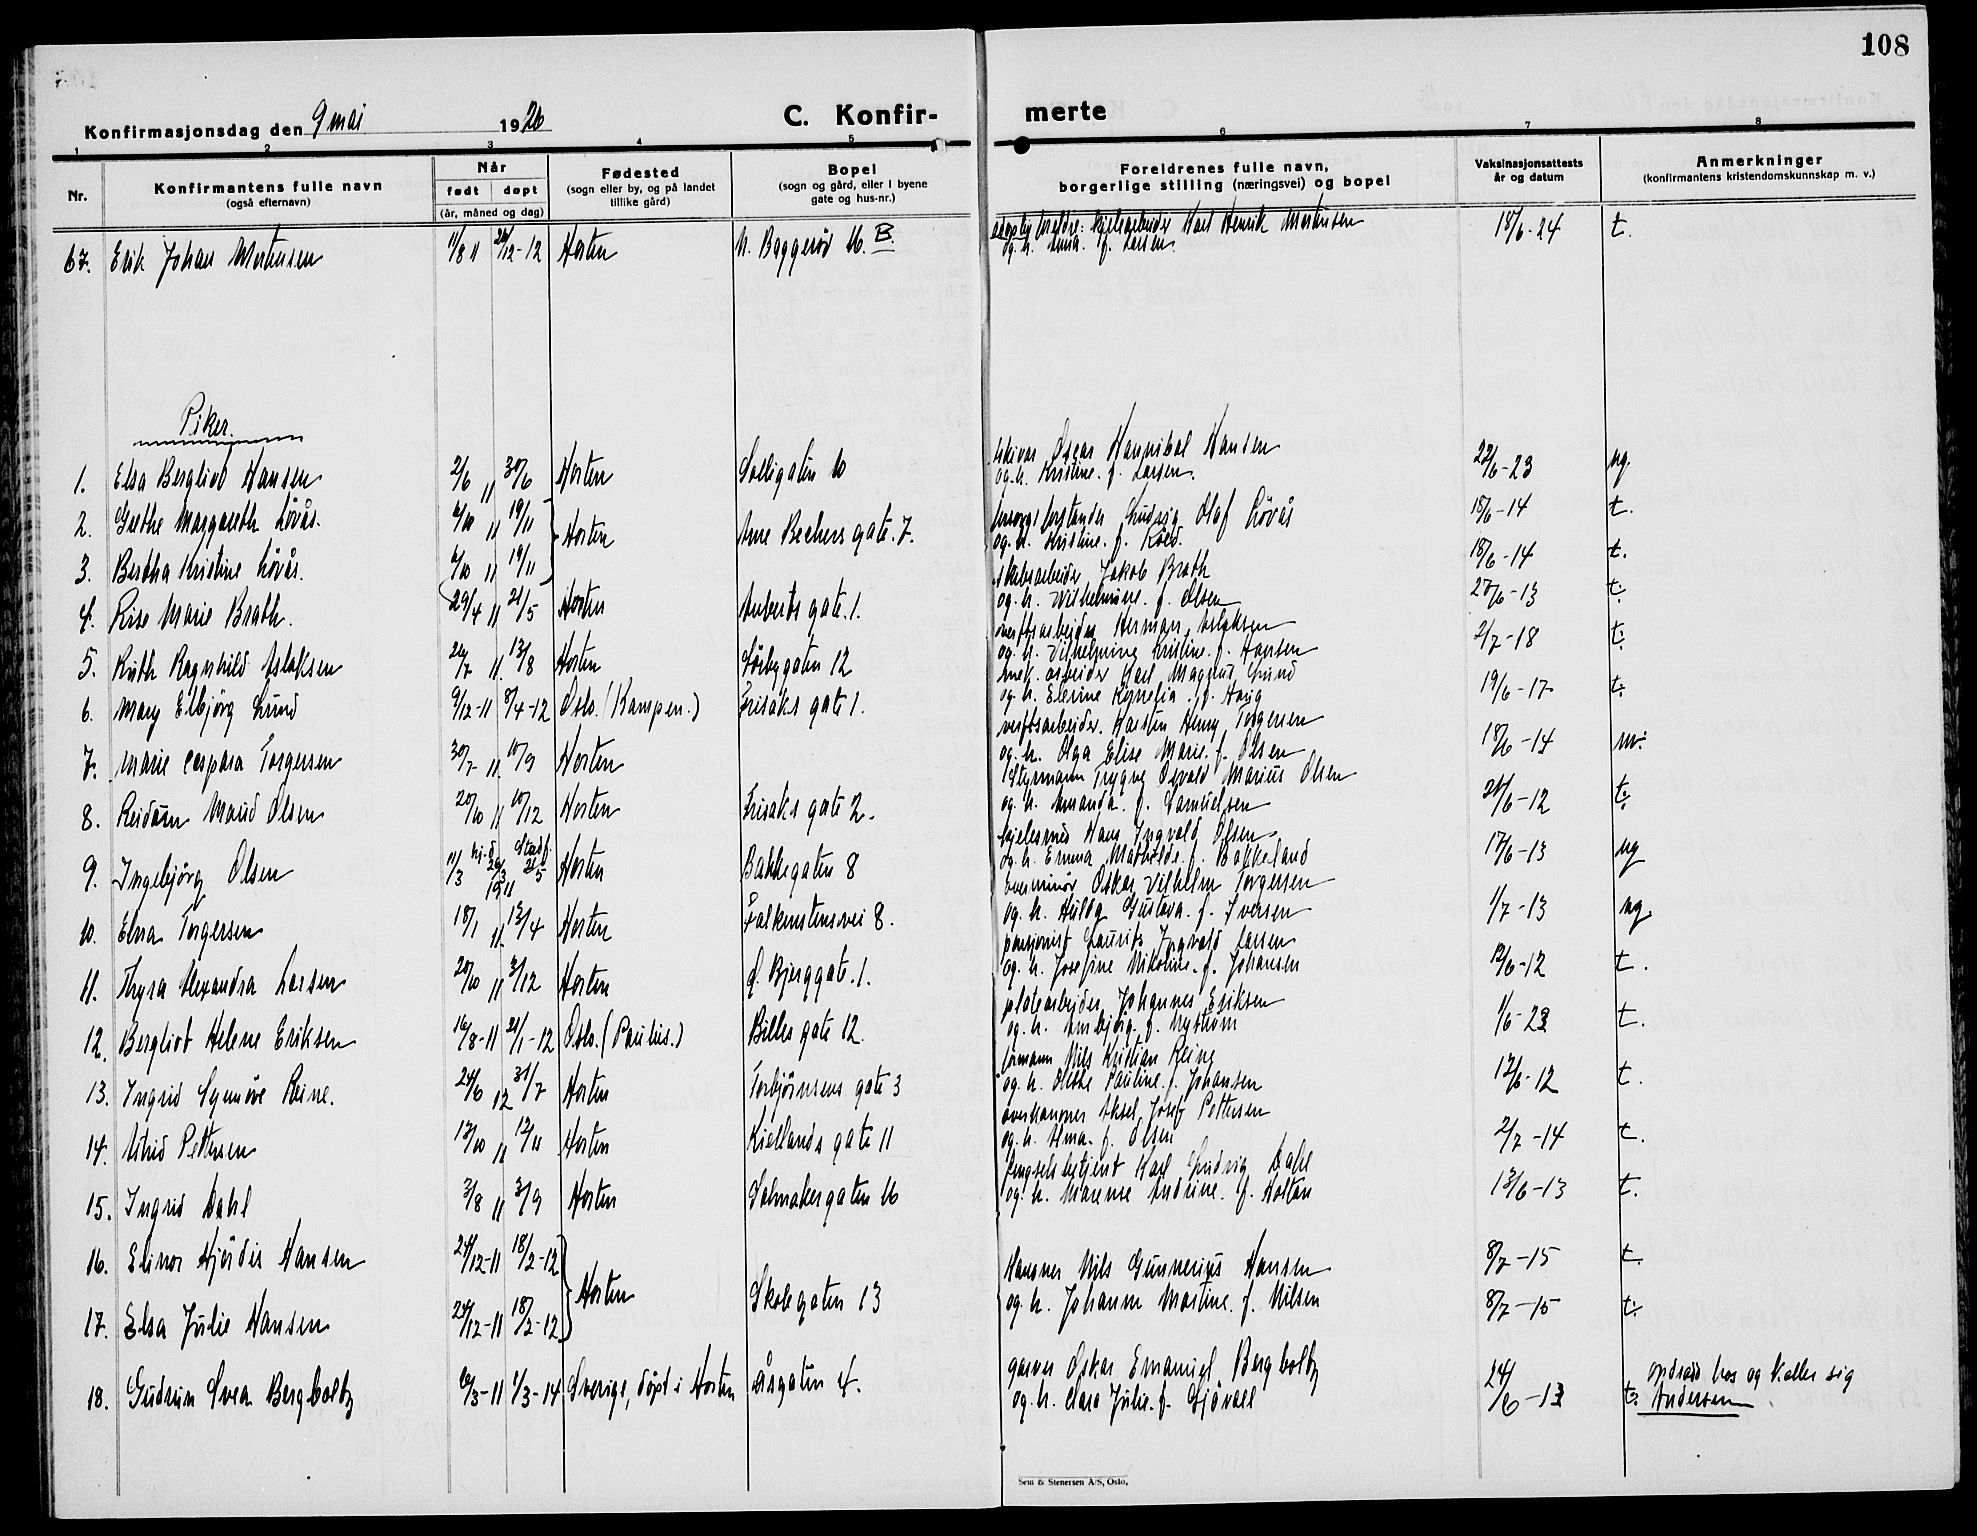 108
Konfirmasjonsdag den 9 mai 1926 C. Konfir- merte
1 2 3 4 5 6 7 8
Nr. Konfirmantens fulle navn (også efternavn) Når født døpt (år, måned og dag) Fødested (sogn eller by, og på landet tillike gård) Bopel (sogn og gård, eller i byene gate og hus-nr.) Foreldrenes fulle navn, borgerlige stilling (næringsvei) og bopel Vaksinasjonsattests år og datum Anmerkninger (konfirmantens kristendomskunnskap m. v.)
67. Erik Johan Mortensen 11/8 11 26/12-12 Horten N. Baggerød 16. B. Karl Henrik Mortensen 18/6-24 t.
og h. Anna. f. Larsen.
Piker.
1. Elsa Bergliot Hansen 2/6 11 30/6 Horten Solligaten 10 Oscar Hannibal Hansen 22/6-23 ng.
og h. Kristine. f. Larsen.
2. Grethe Margareth Løvås. 6/10 11 19/11 Horten Arne Bechers gate. 7. Ludvig Olaf Løvås 18/6-14 t.
og h. Kristine. f. Koed.
3. Bertha Kristine Løvås. 6/10 11 19/11 18/6-14 t.
4. Lise Marie Brath. 29/4 11 21/5 Horten Auberts gate. 1. Jakob Brath 27/6-13 t.
og h. Wilhelmine. f. Olsen
5. Ruth Ragnhild Aslaksen 22/7 11. 13/8 Horten Sørbygaten 12 verftsarbeider Herman Aslaksen 2/7-18 t.
og h. Vilhelmine Kristine. f. Hansen
6. Mary Elbjørg Lund 9/12-11 8/4-12 Oslo. (Kampen.) Frisaks gate 1. mek. arbeider Karl Magnus Lund 19/6-17 t.
og h. Elerine Kornelia. f. Haug
7. Marie Caspara Torgersen 30/7-11. 10/9 Horten verftsarbeider. Karsten Henry Torgersen 18/6-14 m.
og h. Olga Elise Marie. f. Olsen
8. Reidunn Maud Olsen 20/10 11 10/12 Horten Frisaks gate 2. Styrmann Trygve Osvald Marius Olsen 21/6-12 t.
og h. Amanda. f. Samuelsen
9. Ingebjørg Olsen 11/3 hj.d. 26/3 1911 Stadf. 21/5 Horten Bakkegaten 8 kjelesmed Hans Ingvald Olsen 17/6-13 ng
og h. Emma Mathilde. f. Bakkeland
10. Elna Torgersen 18/1 11. 13/4 Horten Falkenstensvei 8. overminør Oskar Vilhelm Torgersen 1/7-13 ng.
og h. Hulda Gustava. f. Iversen
11. Thyra Alexandra Larsen 20/10 11 3/12 Horten Q. Bjerggate. 1. pensjonist Laurits Ingvald Larsen 12/6-12 t.
og h. Josefine Nikoline. f. Johansen
12. Bergliot Helene Eriksen 16/8-11 21/1-12 Oslo. (Paulus.) Billes gate 12. platearbeider Johannes Eriksen 1/6-23 t.
og h. Annbjørg. f. Nystrøm
13. Ingrid Synnøve Reine. 24/6 12 31/7 Horten Torbjørnsens gate 3 formann Nils Kristian Reine 12/6-12 t.
og h. Olethe Pauline. f. Johansen
14. Astrid Pettersen 13/10 11 12/11 Horten Kiellands gate 11 overkanoner Aksel Josef Pettersen 2/7-14 t.
og h. Alma. f. Olsen
15. Ingrid Dahl 3/8 11 3/9 Horten Salmakergaten 16 fengselsbetjent Karl Ludvig Dahl 13/6-13 t.
og h. Marense Andrine. f. Holtan
16. Elinor Hjördis Hansen 24/12-11 18/2-12 Horten Skolegaten 13 Kanoner Nils Gunnerius Hansen 8/7-15 t.
og h. Johanne Martine. f. Nilsen
17. Elsa Julie Hansen 24/12-11 18/2-12 8/7-15 t.
18. Gudrun Svea Bergboltz 6/3-11 1/3-14 Sverige, døpt i Horten Åsgaten 4. garver Oskar Emanuel Bergboltz 24/6-13 t.
og h. Clara Julie. f. Sjövall
opdradd hos og kaller sig Andersen
Sem & Stenersen A/S, Oslo.